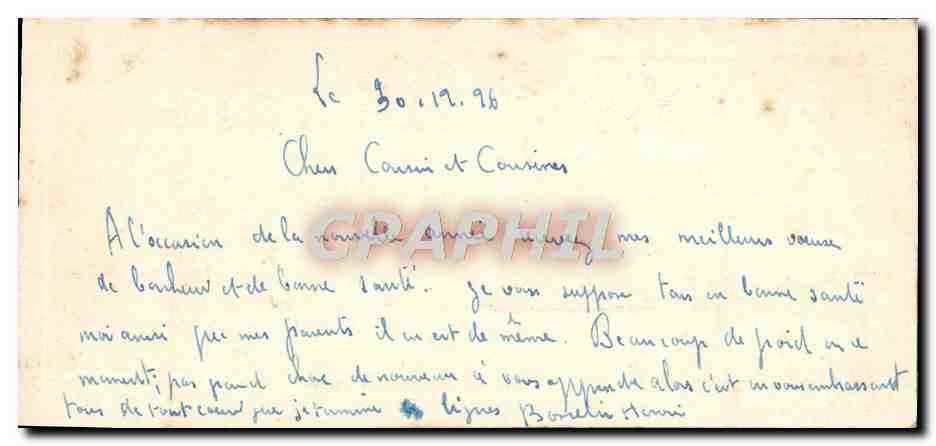 Le 30.12.96
Chers Cousin et Cousines
A l'occasion de la nouvelle année recevez mes meilleurs voeux
de bonheur et de bonne santé. Je vous suppose tous en bonne santé
moi aussi que mes parents il en est de même. Beaucoup de froid en ce
moment; pas grand chose de nouveau à vous apprendre alors c'est en vous embrassant
tous de tout coeur que je termine lignes Henri
CRAPHIL